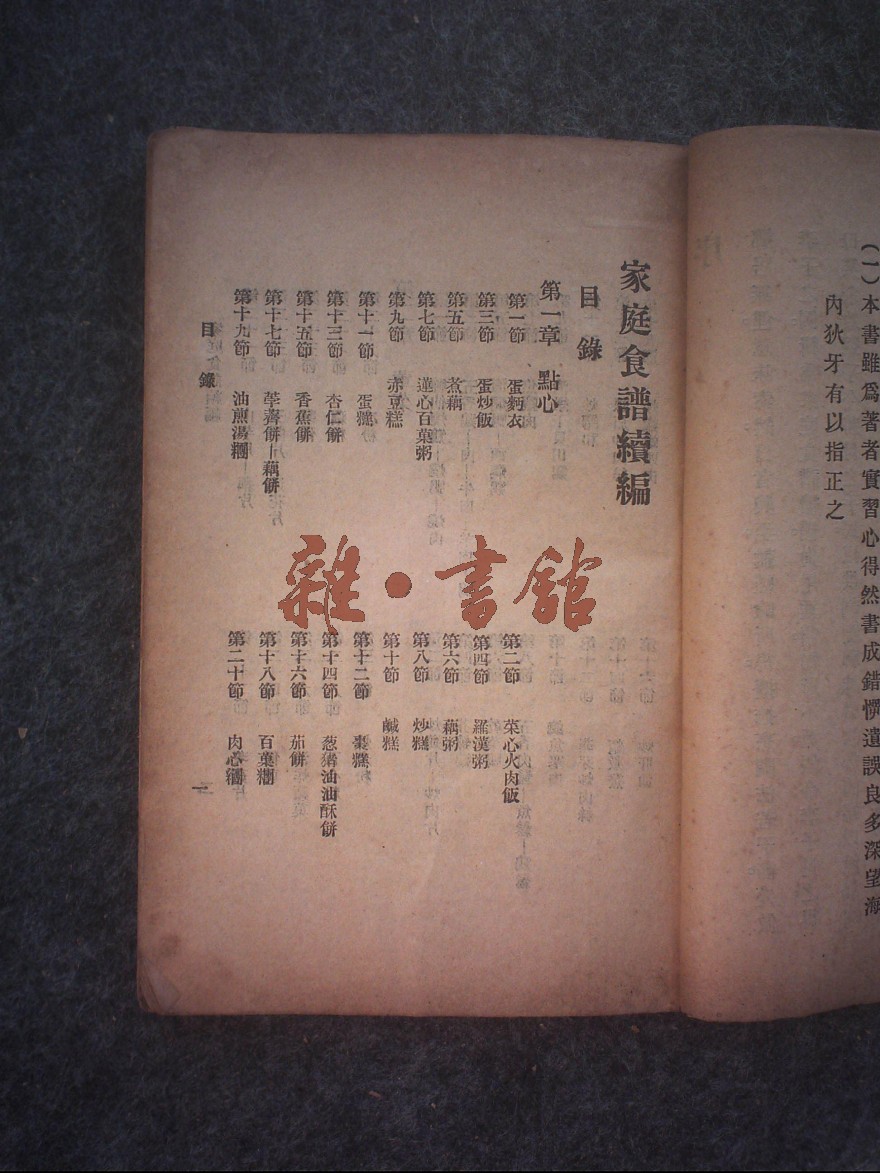 (一)本書雖爲著者實習心得然書成錯愕遺誤良多深望海
內狄牙有以指正之
家庭食譜續編
目錄
第一章 點心
第一節 蛋麪衣
第二節 菜心火肉飯
第三節 蛋炒飯
第四節 羅漢粥
第五節 煮藕
第六節 藕粥
第七節 蓮心百菓粥
第八節 炒糕
第九節 赤豆糕
第十節 鹹糕
第十一節 蛋糕
第十二節 棗糕
第十三節 杏仁餅
第十四節 葱豬油油酥餅
第十五節 香蕉餅
第十六節 茄餅
第十七節 荸薺餅—藕餅
第十八節 百菓糰
第十九節 油煎湯糰
第二十節 肉心糰
目錄
一
雜·書館